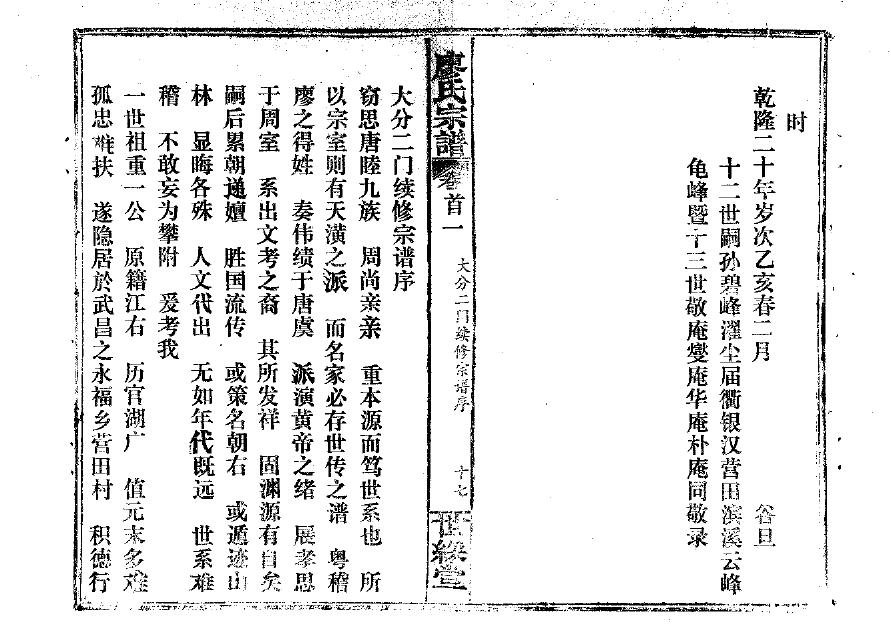 时
乾隆二十年岁次乙亥春二月 谷旦
十二世嗣孙碧峰濯尘届衢银汉营田滨溪云峰
龟峰暨十三世敬庵燮庵华庵朴庵同敬录
廖氏宗谱 卷首一 大分二门续修宗谱序 十七 世彩堂
大分二门续修宗谱序
窃思唐睦九族 周尚亲亲 重本源而笃世系也 所
以宗室则有天潢之派 而名家必存世传之谱 粤稽
廖之得姓 奏伟绩于唐虞 派演黄帝之绪 展孝思
于周室 系出文考之裔 其所发祥 固渊源有自矣
嗣后累朝递嬗 胜国流传 或策名朝右 或遁迹山
林 显晦各殊 人文代出 无如年代既远 世系难
稽 不敢妄为攀附 爰考我
一世祖重一公 原籍江右 历官湖广 值元末多难
孤忠难扶 遂隐居於武昌之永福乡营田村 积德行